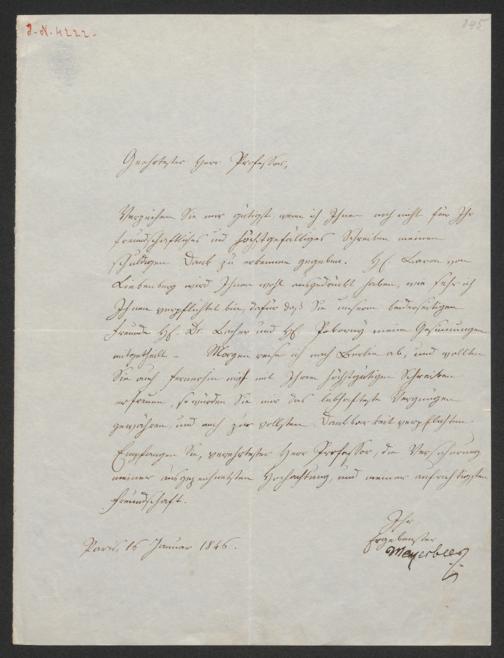 J.-N. 4222.
845
Geehrtester Herr Professor,
Verzeihen Sie mir gütigst wenn ich Ihnen noch nicht für Ihr
freundschaftliches und höchstgefälliges Schreiben meinen
schuldigen Dank zu erkennen gegeben. H. Baron von
wird Ihnen wohl ausgedrückt haben, wie sehr ich
Ihnen verpflichtet bin, dafür daß Sie unserem beiderseitigen
Freunde H. Dr. Bacher und H. meine Gesinnungen
mitgetheilt. Morgen reise ich nach Berlin ab, und wollten
Sie auch fernerhin mich mit Ihrem höchstgütigen Schreiben
erfreuen, so würden Sie mir das lebhafteste Vergnügen
gewähren, und auch zur vollsten Dankbarkeit verpflichten.
Empfangen Sie, verehrtester Herr Professor, die Versicherung
meiner ausgezeichnetsten Hochachtung, und meiner aufrichtigsten
Freundschaft.
Ihr
Ergebenster
Meyerbeer
Paris, 16 Januar 1846.